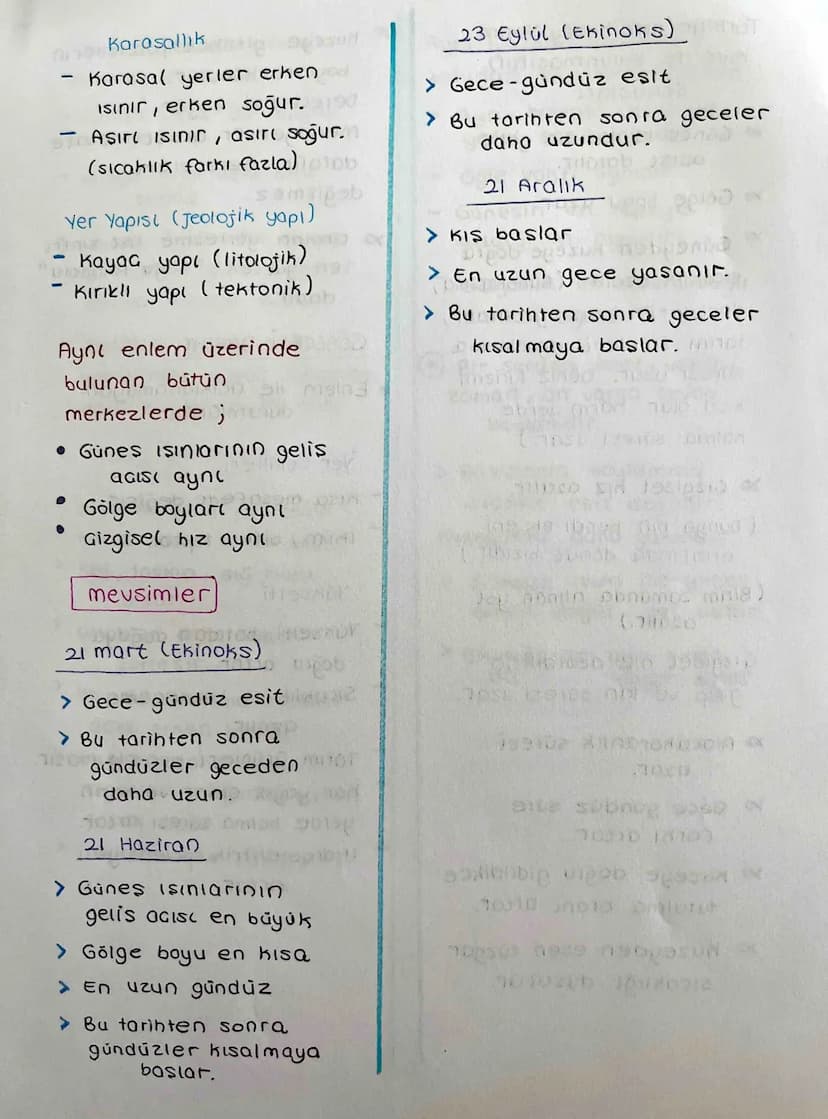 Karasallık
- Karasal yerler erken
ısınır, erken soğur.
- Asırı ısınır, asırı soğur.
(sıcaklık farkı fazla)
Yer Yapısı (Jeolojik yapı)
- Kayac yapı (litolojik)
- Kırıklı yapı (tektonik)
Aynı enlem üzerinde
bulunan bütün
merkezlerde ;
• Günes ısınlarının gelis
acısı aynı
• Gölge boyları aynı
• Cizgisel hız aynı
mevsimler
21 mart (Ekinoks)
> Gece-gündüz esit
> Bu tarihten sonra
gündüzler geceden
daha uzun.
21 Haziran
> Günes ısınlarının
gelis acısı en büyük
> Gölge boyu en kısa
> En uzun gündüz
> Bu tarihten sonra
gündüzler kısalmaya
baslar.
23 Eylül (Ekinoks)
> Gece-gündüz esit
> Bu tarihten sonra geceler
daha uzundur.
21 Aralık
> Kıs baslar
> En uzun gece yasanır.
> Bu tarihten sonra geceler
kısalmaya baslar.